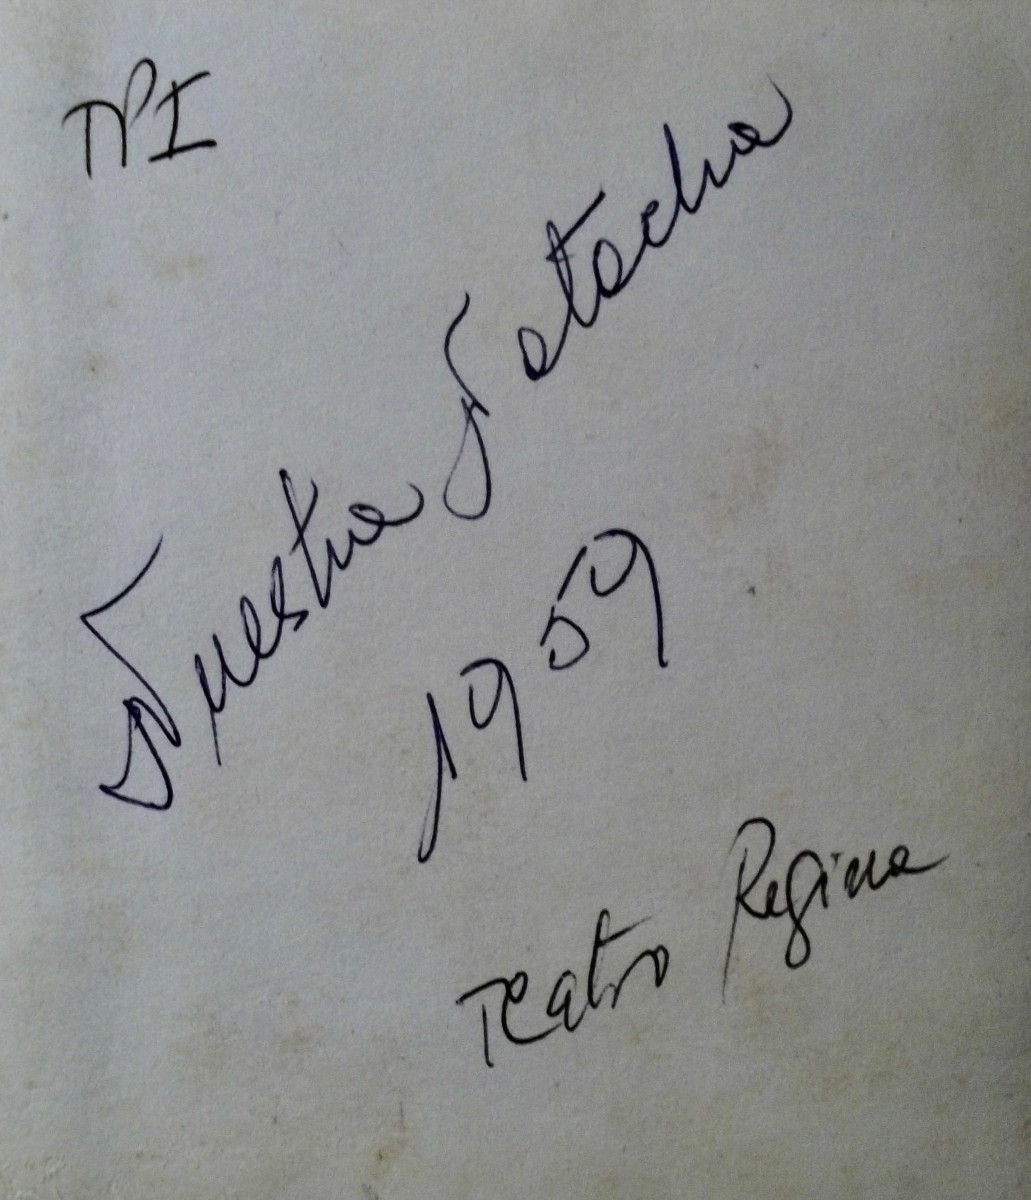 TPI
Nuestra Natacha
1959
Teatro Regina